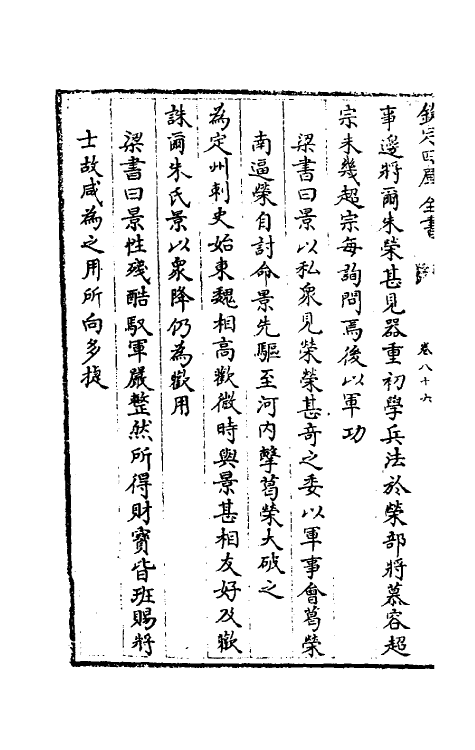 欽定四庫全書
卷八十六
事邊將爾朱榮甚見器重初學兵法於榮部將慕容超
宗未幾超宗每詢問焉後以軍功
梁書曰景以私衆見榮榮甚奇之委以軍事會葛榮
南逼榮自討命景先驅至河内擊葛榮大破之
為定州刺史始東魏相高歡微時與景甚相友好及歡
誅爾朱氏景以衆降仍為歡用
梁書曰景性殘酷馭軍嚴整然所得財寶皆班賜將
士故咸為之用所向多捷